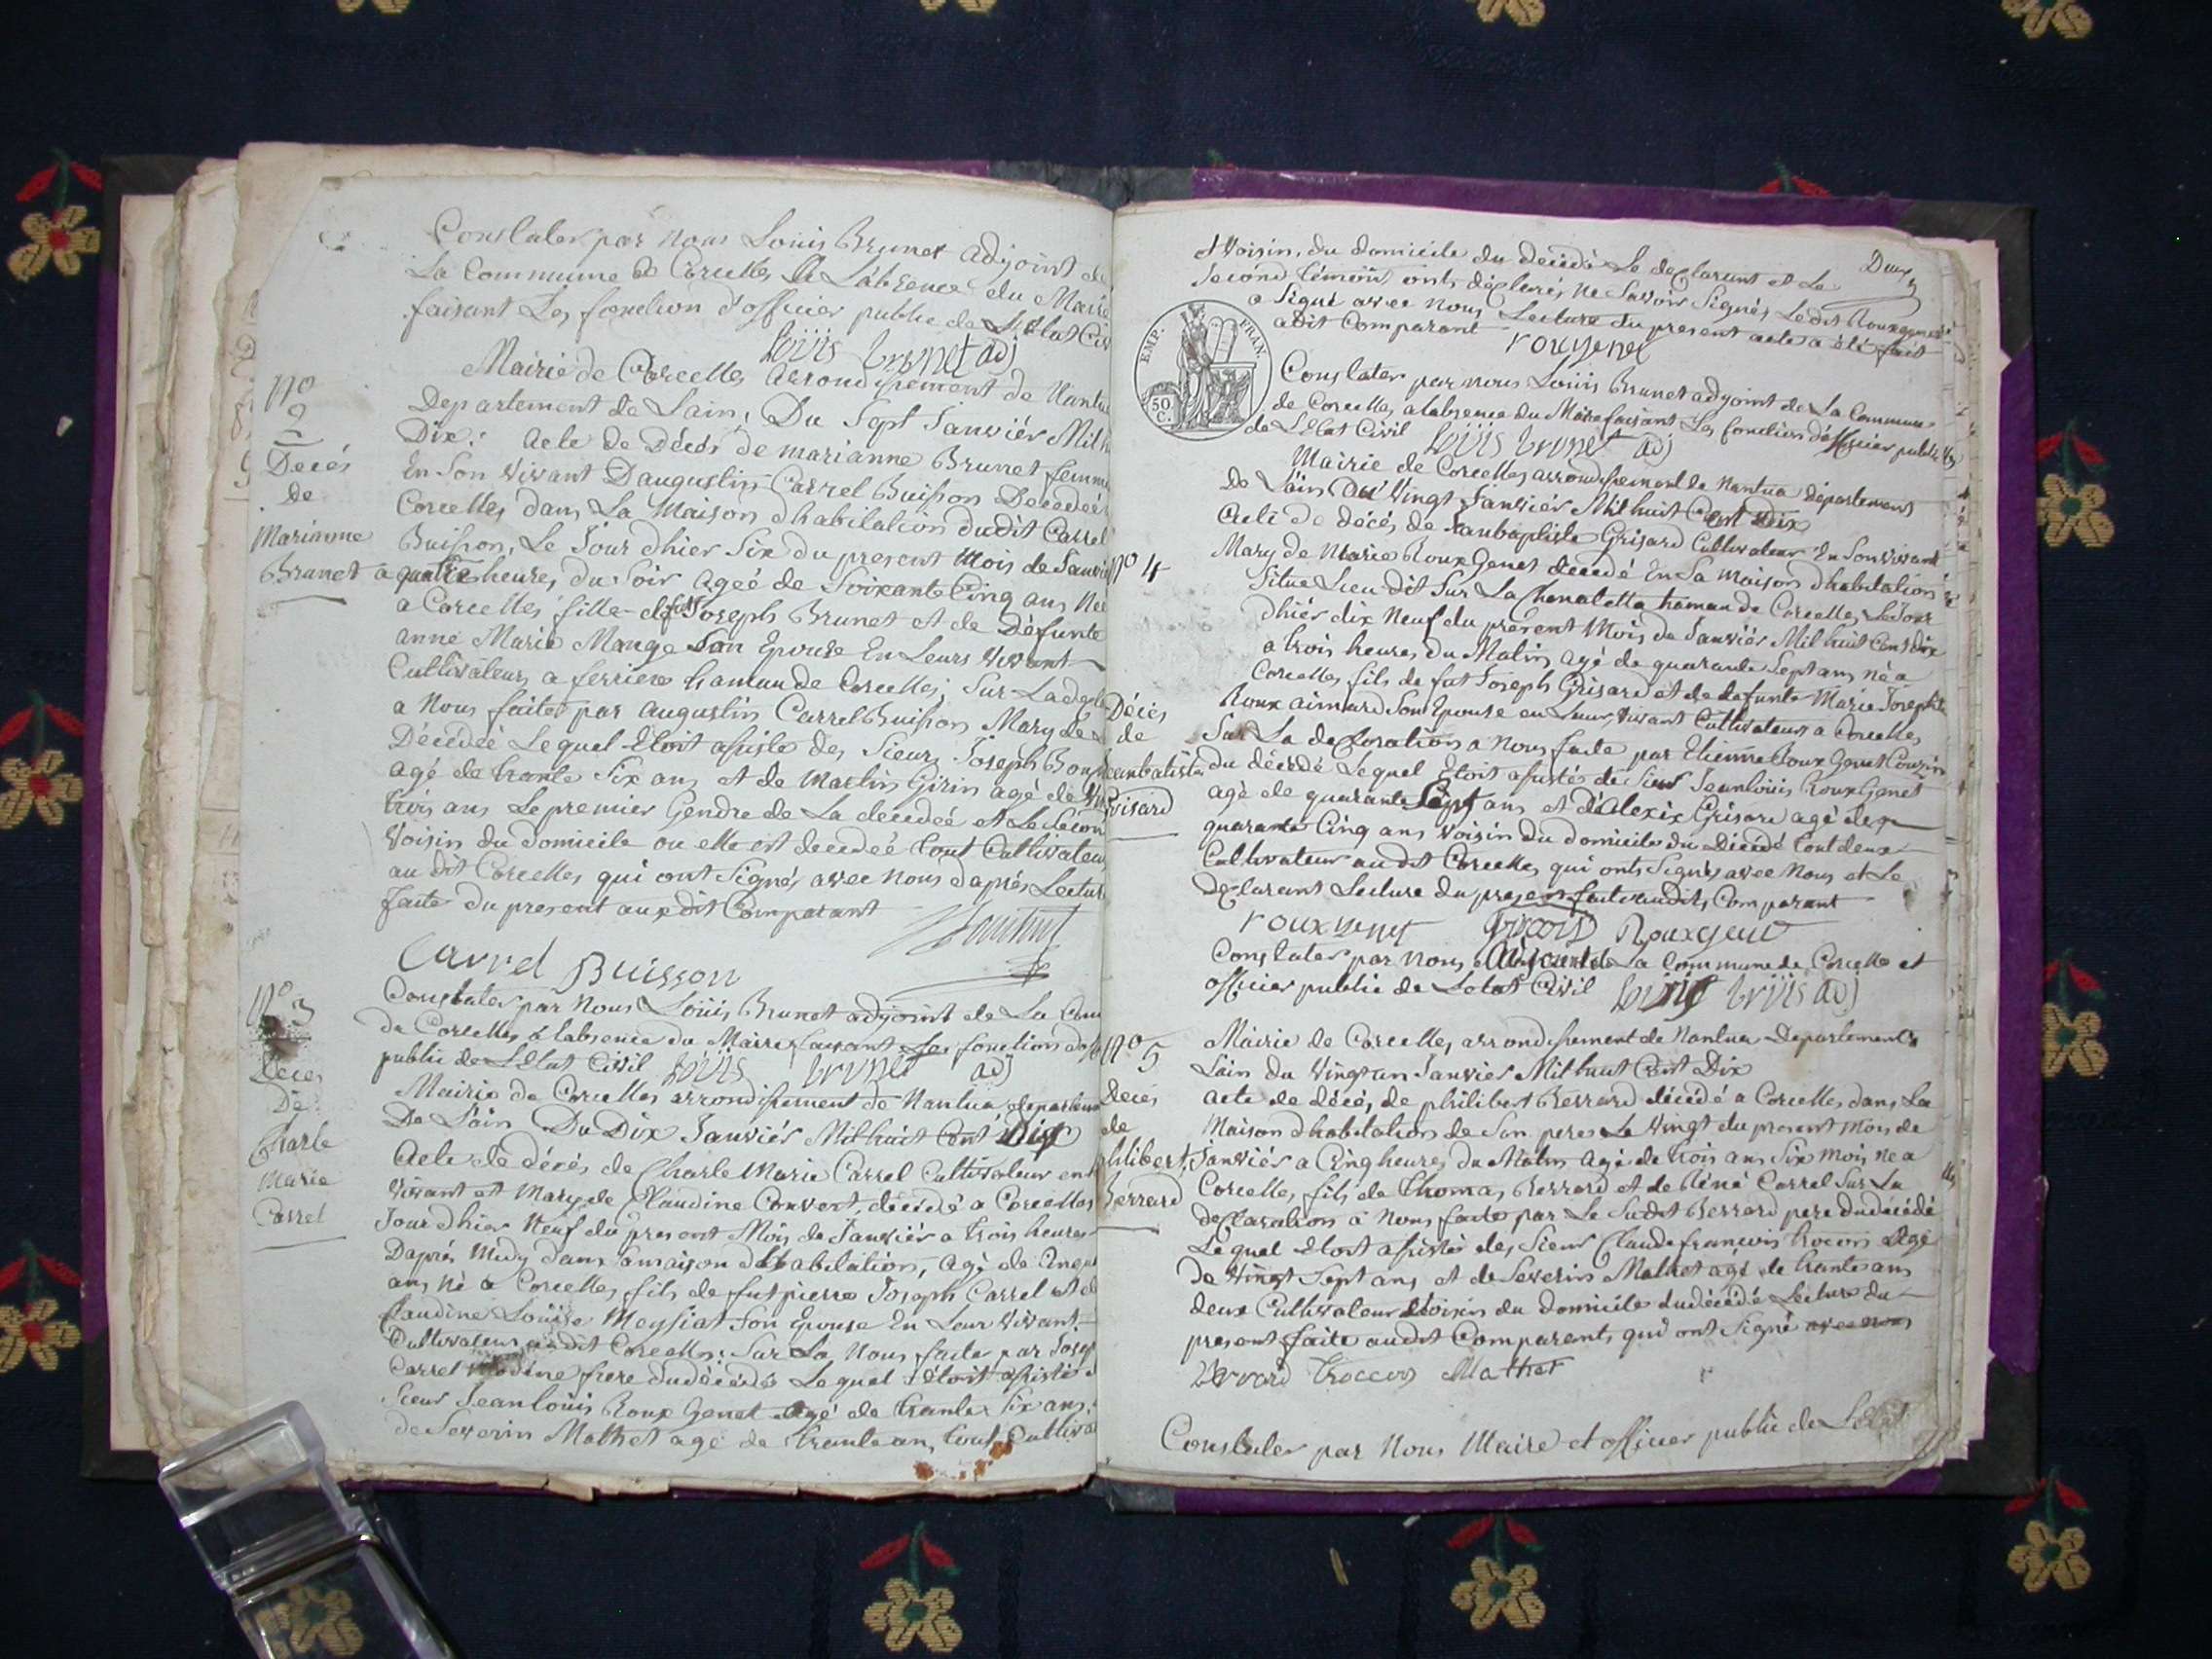 Constater par nous Louis Brunet adjoint de
La Commune de Corcelles a Labsence du Maire
faisant Les fonction d'officier public de L'Etat Civ
Louis brunet adj
Mairie de Corcelles arrondissement de Nantua
Departement de Lain, Du Sept Janvier Mil h
Dix: acte de Décès de marianne Brunet femme
En Son Vivant Daugustin Carrel Buisson Decedée
Corcelles dans La Maison dhabitation dudit Carrel
Buisson, Le Jour dhier Six du present Mois de Janvie
a quatre heures du Soir ageé de Soixante Cinq ans Née
a Corcelles fille de fut Joseph Brunet et de Défunte
anne Marie Monge Son Epouse En Leurs Vivant
Cultivateurs a ferriere hamau de Corcelles; Sur La decla
a Nous faite par augustin Carrel Buisson Mary de
Décédée Lequel Etoit assisté des Sieurs Joseph Bon
agé de trente Six ans et de Martin Girin agé de
trois ans Le premier Gendre de La decedeé et Le Secon
Voisin du domicile ou elle est decedeé tout Cultivateu
au dit Corcelles qui ont Signés avec Nous daprés Lectur
faite du present aux dit Comparant
Carrel Buisson
No 2
Decés
de
Marianne
Brunet
Constater par Nous Louis Brunet adjoint de La Com
de Corcelles a labsence du Maire faisant Les fonction
public de LEtat Civil Louis brunet adj
No 3
Decés
De
Charle
Marie
Carrel
Mairie de Corcelles arrondissement de Nantua departem
De Lain Du Dix Janvier Mil huit Cent Dix
Acte de décés de Charle Marie Carrel Cultivateur en
Vivant et Mary de Claudine Convert, décédé a Corcelles
Jour dhier Neuf du present Mois de Janvier a trois heures
Daprés Midy dans Sa maison dhabitation, agé de Cinqu
ans né a Corcelles fils de fut pierre Joseph Carrel et de
Claudine Louise Meysiat Son Epouse En Leur Vivant
Cultivateurs audit Corcelles: Sur La Nous faite par Josep
Carrel frere du décédé Lequel étoit assisté d
Sieur Jean louis Roux Genet agé de trente Six ans
de Severin Mathet agé de trente an, tout Cultiva
Deux
et Voisin, du domicile du decédé Le declarant et Le
Second témoin onts déclarés ne Savoir Signés Le dit Rouxgenet
a Signé avec nous Lecture du present acte a été fait
adit Comparant rouxgenet
EMP. FRAN.
50 C.
Constater par nous Louis Brunet adjoint de La Commune
de Corcelles a labsence du Maire faisant Les fonction dofficier public
de LEtat Civil Louis brunet adj
Mairie de Corcelles arrondissement de Nantua département
de Lain Du Vingt Janvier Mil huit Cent Dix
No 4
Décés
de
Jeanbatiste
Grisard
Acte de décés de Jeanbaptiste Grisard Cultivateur En Son vivant
Mary de Marie Roux Genet decedé En Sa maison dhabitation
Situe Lieu dit Sur La Chenalette hamau de Corcelles, Le Jour
dhier dix Neuf du present Mois de Janvier Mil huit Cent dix
a trois heures du Matin agé de quarante Sept ans né a
Corcelles fils de fut Joseph Grisard et de defunte Marie Josephte
Roux aimard Son Epouse en Leur Vivant Cultivateurs a Corcelles
Sur La declaration a Nous faite par Etienne Roux Genet Couzin
du décédé Lequel Etoit assistés de Sieur Jeanlouis Roux Genet
agé de quarante Sept ans et d'Alexix Grisard agé de
quarante Cinq ans Voisin du domicile du Décédé tout deux
Cultivateur au dit Corcelles qui onts Signés avec Nous et Le
Declarant Lecture du present faite audits Comparant
rouxgenet Grisard Rouxgenet
Constater par Nous Adjoint de La Commune de Corcelle et
officier public de Letat Civil Louis brunet adj
No 5
Decés
de
philibert
Berrard
Mairie de Corcelles arrondissement de Nantua Departement
Lain du Vingt un Janvier Mil huit Cent Dix
acte de décés, de philibert Berrard décédé a Corcelles dans La
Maison dhabitation de Son pere Le Vingt du present Mois de
Janvier a Cinq heures du Matin agé de trois ans Six mois né a
Corcelles, fils de Thomas Berrard et de Réné Carrel Sur La
déclaration a Nous faite par Le Sudit Berrard pere dudécédé
Lequel Etoit assistés des Sieur Claude francois trocon agé
de Vingt Sept ans et de Severin Mathet agé de trente ans
deux Cultivateur Voisin du domicile dudécédé Lecture du
present faite audit Comparents qui ont Signé avec nous
Berrard troccon Mathet
Constater par Nous Maire et officier public de Letat